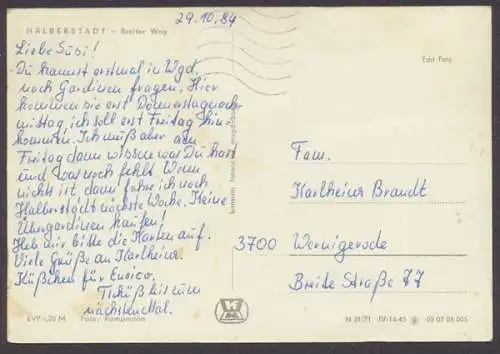 29.10.84
HALBERSTADT – Breiter Weg
Echt Foto
Liebe Susi!
Du kannst erstmal in Wgd.
nach Gardinen fragen. Hier
kommen sie erst Donnerstagnach-
mittag, ich soll erst Freitag hin-
kommen. Ich muß aber am
Freitag dann wissen was Du hast
und was noch fehlt. Wenn
nichts ist dann fahre ich nach
Halberstadt nächste Woche. Keine
Übergardinen kaufen!
Heb mir bitte die Karten auf.
Viele Grüße an Karlheinz.
Küßchen für Enrico.
Tschüß bis zum
nächsten Mal.
Fam.
Karlheinz Brandt
3700 Wernigerode
Breite Straße 77
EVP -,20 M Foto: Kampmann
N 31/71 IV-14-45 09 07 09 005